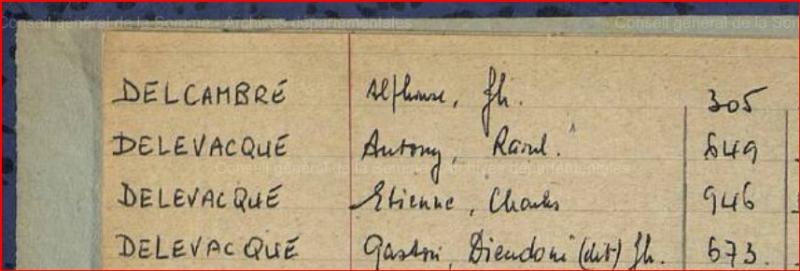 Conseil général de la Somme - Archives départementales Conseil général de la Som
DELCAMBRE Alphonse, Jh. 305
DELEVACQUE Antony, Raoul. 649
Conseil général de la Somme - Archives départementales
DELEVACQUE Etienne, Charles 946
DELEVACQUE Gaston, Dieudoné (dit) Jh. 673.